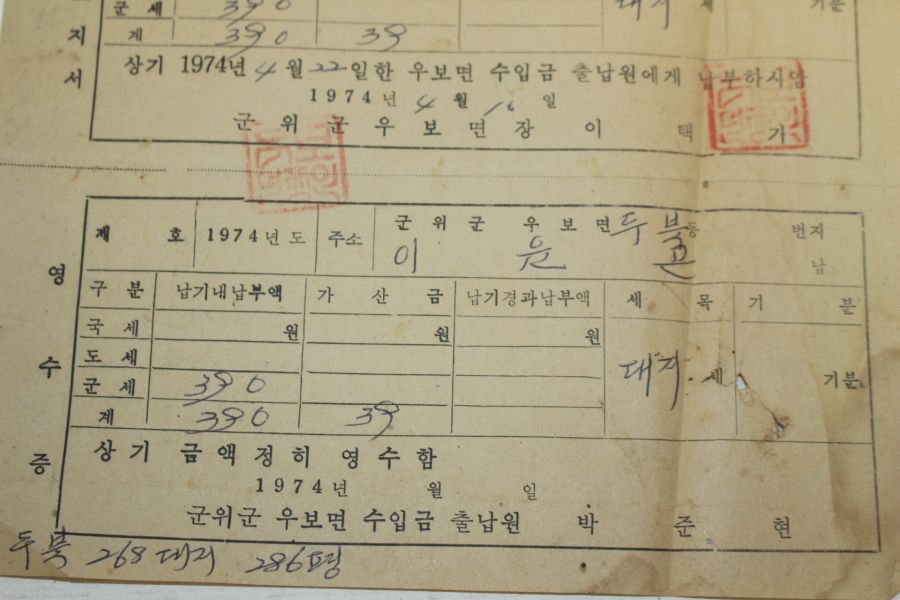 군 세 390 대지 세 기분
계 390 39
지
서
상기 1974년 4월 22일한 우보면 수입금 출납원에게 납부하시압
1974년 4월 16일
군위군우보면장 이 택 기
영수증
제 호 1974년도 주소 군위군 우보면 두북동 번지
이 윤 납
구분 납기내납부액 가산금 납기경과납부액 세목 기분
국세 원 원 원
도세
군세 390 대지세 기분
계 390 39
상기 금액정히 영수함
1974년 월 일
군위군 우보면 수입금 출납원 박 준 현
두북 268 대지 286평